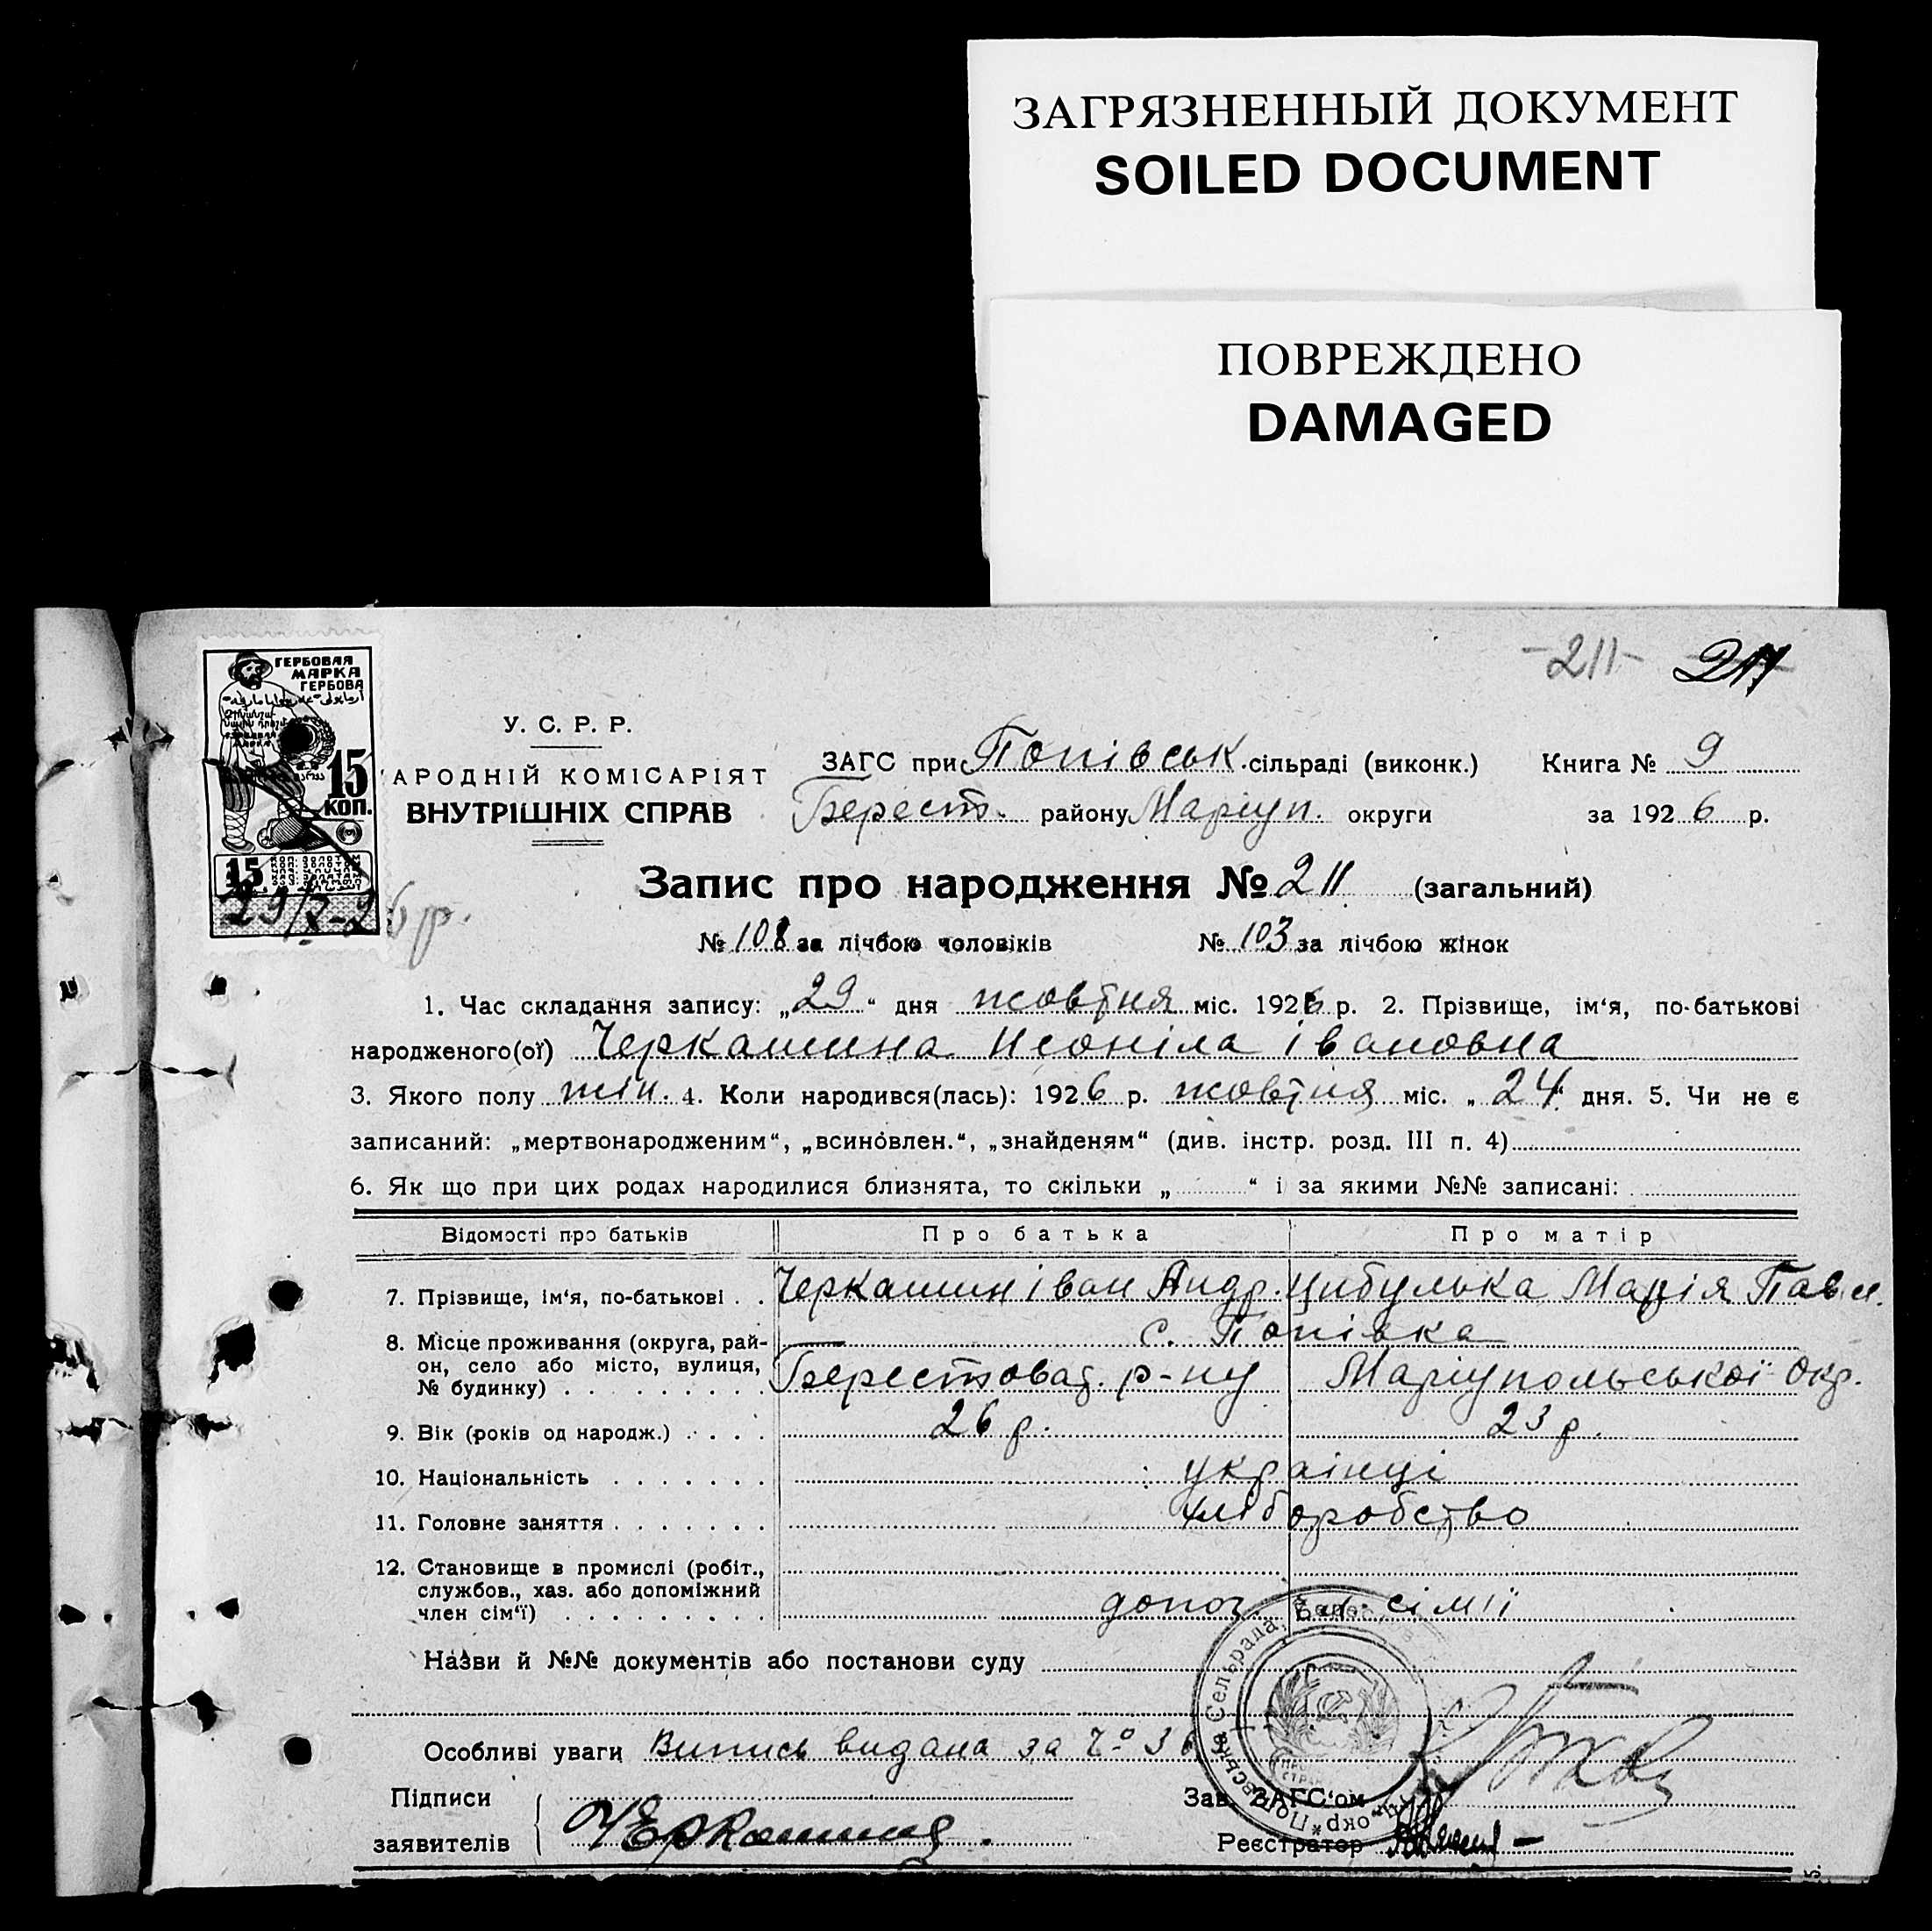 ЗАГРЯЗНЕННЫЙ ДОКУМЕНТ
SOILED DOCUMENT
ПОВРЕЖДЕНО
DAMAGED
-211- 211
ГЕРБОВАЯ
МАРКА
ГЕРБОВА
15
КОП.
15
29/X-26 р.
У. С. Р. Р.
АРОДНІЙ КОМІСАРІЯТ
ВНУТРІШНІХ СПРАВ
ЗАГС при Попівськ. сільраді (виконк.) Книга № 9
Берест. району Маріуп. округи за 1926 р.
Запис про народження № 211 (загальний)
№ 108 за лічбою чоловіків № 103 за лічбою жінок
1. Час складання запису: „29“ дня жовтня міс. 1926 р. 2. Прізвище, ім‘я, по-батькові
народженого(ої) Черкашина Неоніла Івановна
3. Якого полу жін. 4. Коли народився(лась): 1926 р. жовтня міс. „24“ дня. 5. Чи не є
записаний: „мертвонародженим“, „всиновлен.“, „знайденям“ (див. інстр. розд. III п. 4)
6. Як що при цих родах народилися близнята, то скільки „ “ і за якими №№ записані:
Відомості про батьків Про батька Про матір
7. Прізвище, ім‘я, по-батькові . . Черкашин Іван Андр. Цибулька Марія Павл.
8. Місце проживання (округа, рай- с. Попівка
он, село або місто, вулиця, Берестоват. р-ну Маріупольської Окр.
№ будинку) . . . . . . . . .
9. Вік (років од народж.) . . . . 26 р. 23 р.
10. Національність . . . . . . . українці
11. Головне заняття . . . . . . . хліборобство
12. Становище в промислі (робіт.,
службов., хаз. або допоміжний
член сім‘ї) . . . . . . . . . сімії
Назви й №№ документів або постанови суду
Особливі уваги Випись видана за № 36
Підписи
заявителів Черкашин
Зав. ЗАГС‘ом
Реєстратор
Сельрада